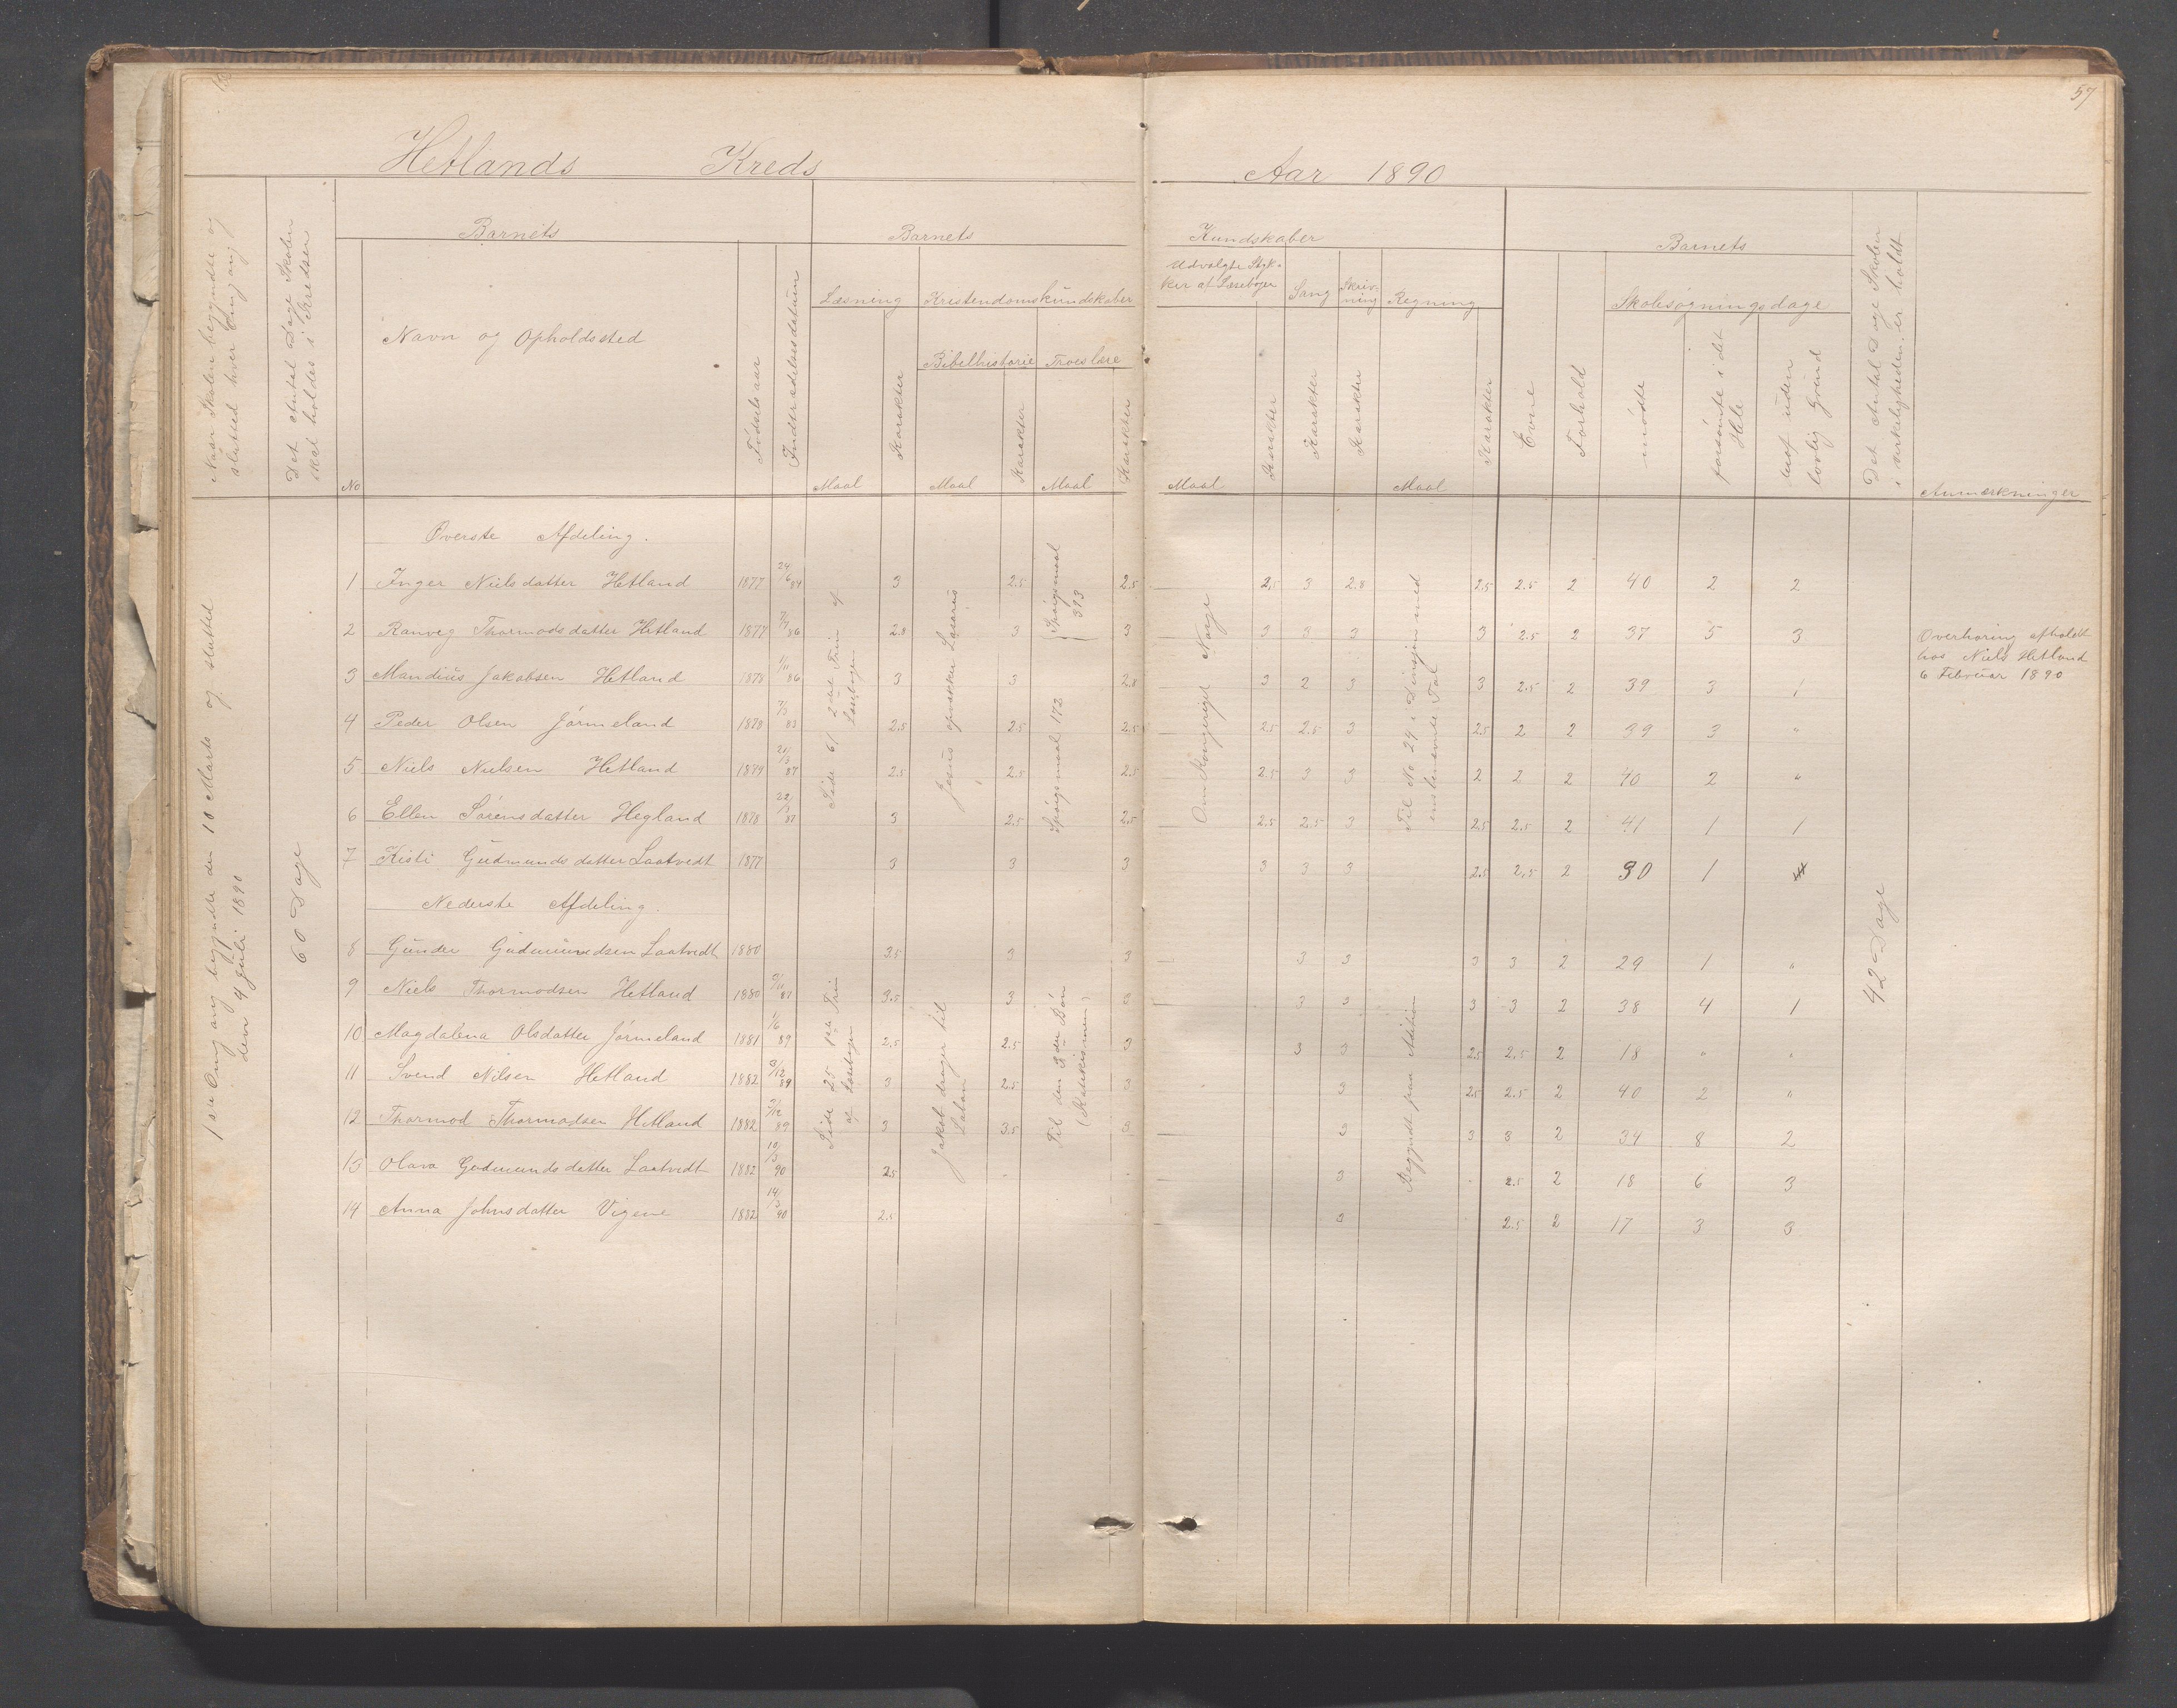 57
Hetlands Kreds Aar 1890
Naar Skolen begyndte og
slutted hver Omgang
Det Antal Dage Skolen
skal holdes i Kredsen
No
Barnets
Navn og Opholdssted
Fødselsaar
Indtrædelsesdatum
Barnets
Læsning
Maal
Karakter
Kristendomskundskaber
Bibelhistorie
Maal
Karakter
Troeslære
Maal
Karakter
Kundskaber
Udvalgte Styk-
ker af Læsebøger
Maal
Karakter
Sang
Karakter
Skriv-
ning
Karakter
Regning
Maal
Karakter
Barnets
Evne
Forhold
Skolesøgningsdage
mødte
forsømte i det
Hele
uden
lovlig Grund
Det Antal Dage Skolen
i virkeligheden er holdt
Anmærkninger
1ste Omgang begyndte den 10 Marts og sluttet
den 4 Juli 1890
60 Dage
Øverste Afdeling.
1 Inger Nielsdatter Hetland 1877 24/6 84 3 2.5 2.5 2,5 3 2.8 2.5 2.5 2 40 2 2
2 Ranveg Thormodsdatter Hetland 1877 86 2.8 3 3 3 3 3 3 2.5 2 37 5 3
3 Mandius Jakobsen Hetland 1878 1/11 86 3 3 2.8 3 2 3 3 2.5 2 39 3 1
4 Peder Olsen Jørmeland 1878 83 2.5 2.5 2.5 2.5 2.5 3 2.5 2 2 39 3 "
5 Niels Nielsen Hetland 1879 21/3 87 2.5 2.5 2.5 2.5 3 3 2 2 2 40 2 "
6 Ellen Sørensdatter Hegland 1878 22/3 87 3 2.5 2.5 2.5 2.5 3 2.5 2.5 2 41 1 1
7 Kisti Gudmundsdatter Laatvedt 1877 3 3 3 3 3 3 2.5 2.5 2 30 1
Side 61 2det Trin af
Læsebogen
Jesus opvækker Lasarus
Spørgsmaal
393
Spørgsmaal 172
Om Kongeriget Norge
Til No 24 i Divisjon med
ensbenævnte Tal
Overhøring afholdt
hos Niels Hetland
6 Februar 1890
Nederste Afdeling.
8 Gunder Gudmundsen Laatvedt 1880 3.5 3 3 3 3 3 3 2 29 1 "
9 Niels Thormodsen Hetland 1880 87 3.5 3 3 3 3 3 3 2 38 4 1
10 Magdalena Olsdatter Jørmeland 1881 1/6 89 2,5 2.5 3 3 3 2.5 2,5 2 18 " "
11 Svend Nilsen Hetland 1882 3/12 89 3 2.5 3 3 2.5 2.5 2 40 2 "
12 Thormod Thormodsen Hetland 1882 3/12 89 3 3.5 3 3 3 3 2 34 8 2
13 Olava Gudmundsdatter Laatvedt 1882 10/3 90 2.5 3 2.5 2 18 6 3
14 Anna Johnsdatter Vigene 1882 14/3 90 2.5 3 2.5 2 17 3 3
Side 25 1ste Trin
af Læsebogen
Jakob drager til
Laban
Til den 3die Bøn
(Katekismen)
Begyndt paa Adition
42 Dage